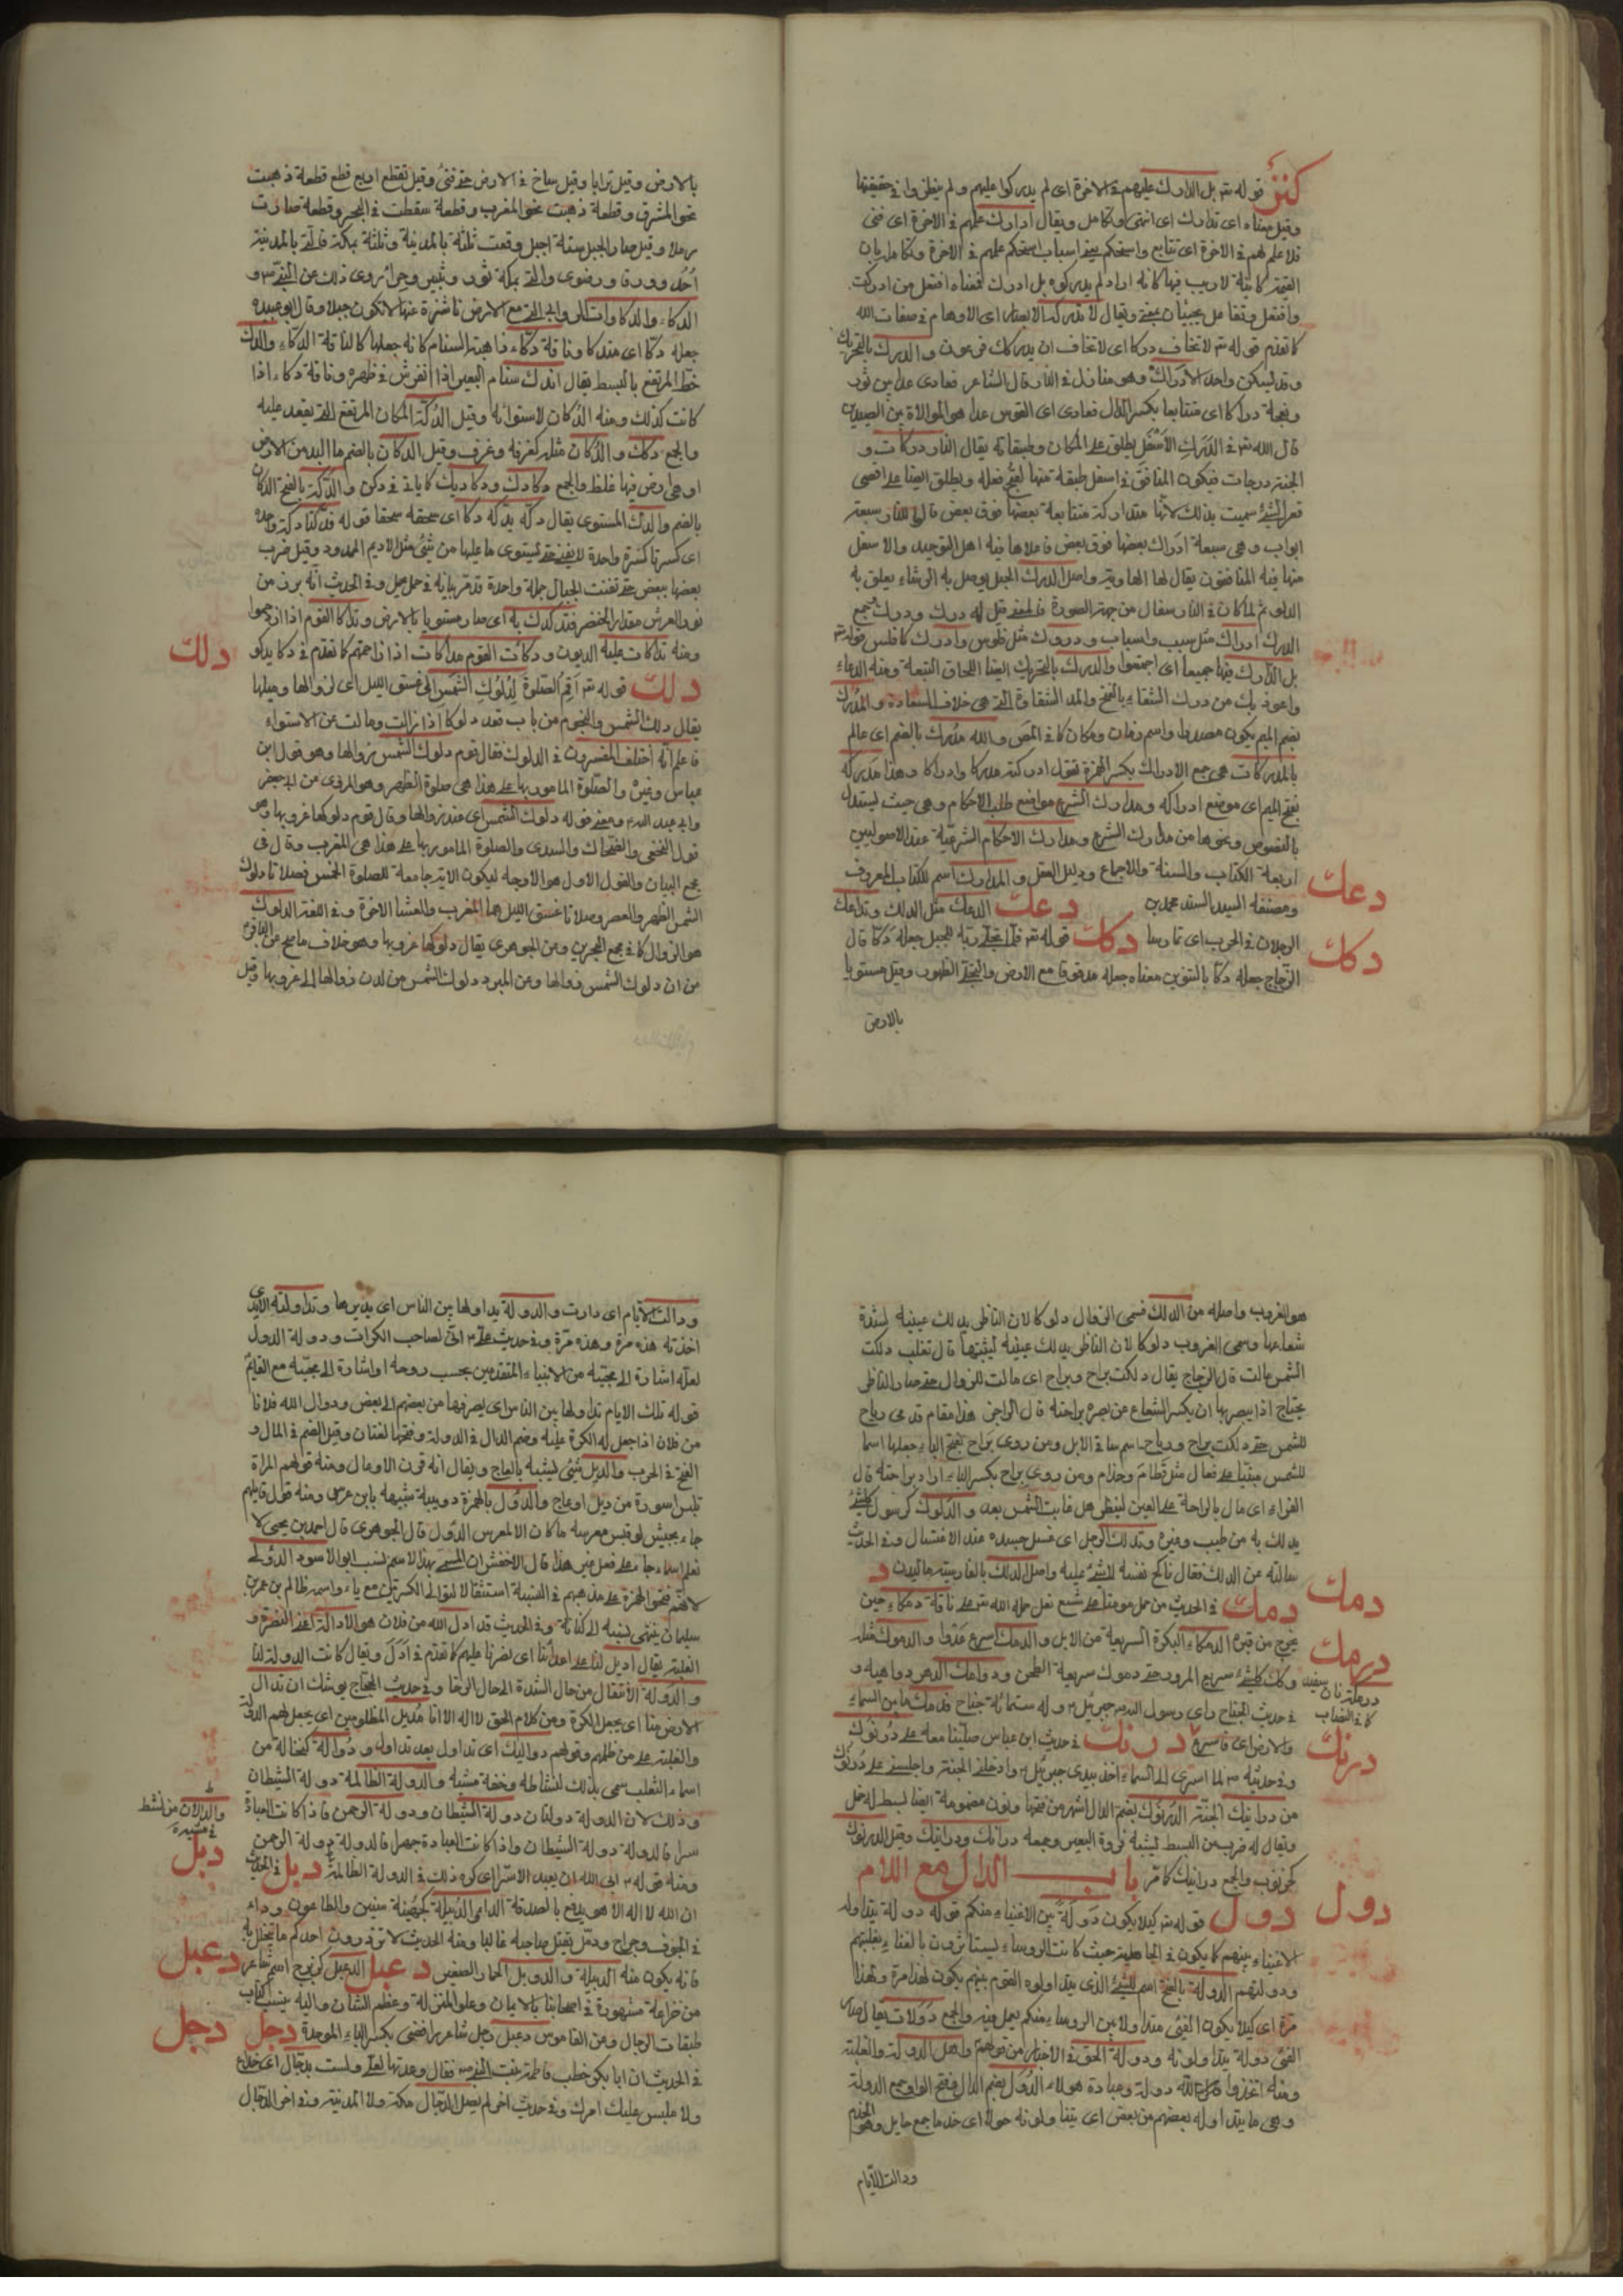 كنز قوله تع بل ادارك علمهم في الاخرة اى لم يدركوا علمهم ولم ينظروا في حقيقتها
وقيل معناه اى تدارك اى انتهى وتكامل ويقال ادارك علمهم في الاخرة اى فنى
فلا علم لهم في الاخرة اى تتابع واستحكم يعنى اسباب استحكام علمهم في الاخرة وتكامل بان
القيمة كاينة لا ريب فيها كانه اراد لم يدركوه بل ادرك فمعناه افتعل من ادركت
وافتعل وتفاعل يجيئان بمعنى ويقال لا تدركه الابصار اى الاوهام في صفات الله
كما تقدم قوله تع لا تخاف دركا اى لا تخاف ان يدركك فرعون والدرك بالتحريك
وقد يسكن واحد الادراك وهو منازل في النار قال الشاعر فعادى عداء بين ثور
ونعجة دراكا اى متتابعا بكسر الدال فعادى اى الفرس عداء هو الموالاة بين الصيدين
قال الله تع في الدرك الاسفل يطلق على المكان وطبقاته يقال النار دركات و
الجنة درجات فيكون المنافق في اسفل طبقة منها لقبح فعله ويطلق ايضا على اقصى
قعر الشئ سميت بذلك لانها متداركة متتابعة بعضها فوق بعض قالوا للنار سبعة
ابواب وهى سبعة ادراك بعضها فوق بعض فاعلاها فيه اهل التوحيد والاسفل
منها فيه المنافقون يقال لها الهاوية واصل الدرك الحبل يوصل به الرشاء يعلق به
الدلو ثم لمكان في النار سفال من جهة الصورة والمعنى قيل له درك ودرك وجمع
الدرك ادراك مثل سبب واسباب ودروك مثل فلوس وادرك كافلس قوله تع
بل ادارك فيها جميعا اى اجتمعوا والدرك بالتحريك ايضا اللحاق التبعة ومنه الدعاء
واعوذ بك من درك الشقاء بالفتح والمد الشقاوة التى هى خلاف السعادة والمدرك
بضم الميم يكون مصدرا واسم زمان ومكان كما في المص والله مدرك بالضم اى عالم
بالمدركات هى جمع الادراك بكسر الهمزة تقول ادركته مدركا وادراكا وهذا مدركه
بفتح الميم اى موضع ادراكه ومدارك الشرع مواضع طلب الاحكام وهى حيث يستدل
بالنصوص ونحوها من مدارك الشرع ومدارك الاحكام الشرعية عند الاصوليين
اربعة الكتاب والسنة والاجماع ودليل العقل والمدارك اسم للكتاب المعروف
ومصنفه السيد السند محمد بن دعك الدعك مثل الدلك وتداعك
الرجلان في الحرب اى تمارسا دكك قوله تع فلما تجلى ربه للجبل جعله دكا قال
الزجاج جعله دكا بالتنوين معناه جعله مدقوقا مع الارض والتجلى الظهور وقيل مستويا
دعك
دكك
بالارض
بالارض وقيل ترابا وقيل ساخ في الارض حتى فنى وقيل تقطع اربع قطع قطعة ذهبت
نحو المشرق وقطعة ذهبت نحو المغرب وقطعة سقطت في البحر وقطعة صارت
رملا وقيل صار الجبل ستة اجبل وقعت ثلثة بالمدينة وثلثة بمكة فالتى بالمدينة
احد وورقا ورضوى والتى بمكة ثور وثبير وحراء روى ذلك عن النبى ص و
الدكاء والدكاوات التلال وابدا التى مع الارض ناشزة عنها لا تكون جبلا وقال ابو عبيدة
جعله دكا اى مندكا وناقة دكاء ذاهبة السنام كانه جعلها كالناقة الدكاء والدك
خط المرتفع بالبسط يقال اندك سنام البعير اذا انفرش في ظهره وناقة دكاء اذا
كانت كذلك ومنه الدكان لاستوائه وقيل الدكة المكان المرتفع التى يقعد عليه
والجمع دكك والدكان مثله كغرفة وغرف وقيل الدكان بالضم ما البد من الارض
او هى ارض فيها غلظ والجمع دكادك ودكاديك كما ياتى في دكن والدكة بالفتح الدكان
بالضم والدك المستوى يقال دكه يدكه دكا اى سحقه سحقا قوله فدكتا دكة واحدة
اى كسرتا كسرة واحدة لا يثنى حتى يستوى ما عليها من شئ مثل الاديم الممدود وقيل ضرب
بعضها ببعض حتى تفتت الجبال جملة واحدة وفي الحديث انه برز من
نور العرش مقدار الخنصر فتدكدك به اى صار مستويا بالارض وتداكا القوم اذا ازدحموا
ومنه تداكات عليه الديون ودكات القوم مداكات اذا زاحمتهم كما تقدم في دكا يدكو
دلك قوله تع اقم الصلوة لدلوك الشمس الى غسق الليل اى لزوالها وميلها
يقال دلك الشمس والنجوم من باب قعد دلوكا اذا زالت ومالت عن الاستواء
فاعلم انه اختلف المفسرون في الدلوك فقال قوم دلوك الشمس زوالها وهو قول ابن
عباس وغيره والصلوة المامور بها على هذا هى صلوة الظهر وهو المروى عن ابى جعفر
وابى عبد الله ع ومعنى قوله دلوك الشمس اى عند زوالها وقال قوم دلوكها غروبها وهو
قول النخعى والضحاك والسدى والصلوة المامور بها على هذا هى المغرب وقال في
مجمع البيان والقول الاول هو الاوجه ليكون الاية جامعة للصلوة الخمس فصلاتا دلوك
الشمس الظهر والعصر وصلاتا غسق الليل هما المغرب والعشا الاخرة وفي اللغة الدلوك
هو الزوال كما في مجمع البحرين وعن الجوهرى يقال دلوكها غروبها وهو خلاف ما صح عن الباقر ع
من ان دلوك الشمس زوالها وعن المبرد دلوك الشمس من لدن زوالها الى غروبها وقيل
دلك
هو الغروب واصله من الدلك فسمى الزوال دلوكا لان الناظر يدلك عينيه لشدة
شعاعها وسمى الغروب دلوكا لان الناظر يدلك عينيه ليثبتها قال ثعلب دلكت
الشمس مالت قال الزجاج يقال دلكت براح وبراح اى مالت للزوال حتى صار الناظر
يحتاج اذا يبصرها ان يكسر الشعاع عن بصره براحته قال الراجز هذا مقام قدمى رباح
للشمس حتى دلكت براح ورباح اسم ساقى الابل ومن روى براح بفتح الباء جعلها اسما
للشمس مبنيا على فعال مثل قطام وحذام ومن روى براح بكسر الباء اراد براحته قال
الفراء اى مال بالراحة على العين لينظر هل غابت الشمس بعد والدلوك كرسول كل شئ
يدلك به من طيب وغيره وتدلك الرجل اى غسل جسده عند الاغتسال وفي الحديث
سالته عن الدلك فقال ناكح نفسه لا شئ عليه واصل الدلك بالفارسية ماليدن
دمك في الحديث من حمل مؤمنا على شسع نعل حمله الله تع على ناقة دمكاء حين
يخرج من قبره الدمكاء البكرة السريعة من الابل والدمك اسرع عدوا والدموك مثله
وكل شئ سريع المرور حتى دموك سريعة الطحن ودوامك الدهر دواهيه و
في حديث الجناح راى رسول الله ص جبرئيل ع وله ستمائة جناح قد دمك ما بين السماء
والارض اى فاسرع درنك في حديث ابن عباس صلينا معه على درنوك
وفي حديثه ص لما اسرى الى السماء اخذ بيدى جبرئيل ع وادخلنى الجنة واجلسنى على درنوك
من درانيك الجنة الدرنوك بضم الدال اشهر من فتحها ونون مضمومة ايضا بسط له خمل
ويقال له ضرب من البسط يشبه فروة البعير وجمعه درانك ودرانيك وقيل الدرنوك
كخرنوب والجمع درانيك كما مر باب الدال مع اللام
دول قوله تع كيلا يكون دولة بين الاغنياء منكم قوله دولة يتداوله
الاغنياء بينهم كما يكون في الجاهلية حيث كانت الروساء يستاثرون بالغناء بغلبتهم
ودولتهم الدولة بالفتح اسم للشئ الذى يتداولوه القوم بينهم يكون لهذا مرة ولهذا
مرة اى كيلا يكون الفئ متداولا بين الروساء منكم يعمل فيه والجمع دولات يقال صار
الفئ دولة يتداولونه ودولة الحق في الاخبار من قولهم واهل الدولة والغلبة
ومنه اتخذوا مال الله دولة وعبادة هؤلاء الدول بضم الدال وفتح الواو جمع الدولة
وهى ما يتداوله بعضهم من بعض اى يتناولونه حولا اى خدما جمع خايل وهو الخادم
دمك
درمك
درنك
دول
ودالت الايام
ودالت الايام اى دارت والدولة يداولها بين الناس اى يديرها وتداولته الايدى
اخذته هذه مرة وهذه مرة وفي حديث على ع انى لصاحب الكرات ودولة الدول
لعله اشارة الى مجيئه مع الانبياء المتقدمين بحسب روحه او اشارة الى مجيئه مع القائم
قوله تلك الايام نداولها بين الناس اى يصرفها من بعضهم الى بعض ودوال الله فلانا
من فلان اذا جعل له الكرة عليه وضم الدال في الدولة وفتحها لغتان وقيل الضم في المال و
الفتح في الحرب والدبل شئ يشبه بالعاج ويقال انه قرن الاوعال ومنه قولهم المراة
تلبس اسورة من دبل او عاج والدئل بالهمزة دويبة شبيهة بابن عرس ومنه قول قائلهم
جاءا بجيش لو قيس معرسه ما كان الا لمعرس الدئل قال الجوهرى قال احمد بن يحيى لا
نعلم اسما جاء على فعل غير هذا قال الاخفش ان المسمى بهذا الاسم نسب ابو الاسود الدؤلى
لانهم فتحوا الهمزة على مذهبهم في النسبة استثقالا لتوالى الكسرتين مع ياء واسمه ظالم بن عمر بن
سليمان ينتهى نسبه الى كنانة وفي الحديث قد ادل الله من فلان هو الادالة اعنى النصرة و
الغلبة يقال اديل لنا على اعدائنا اى نصرنا عليهم كما تقدم في ادل ويقال كانت الدولة لنا
والدولة الانتقال من حال الشدة الى حال الرخاء وفي حديث الحجاج يوشك ان تدال
الارض منا اى يجعل الكرة ومن كلام الحق لا اله الا انا مديل المظلومين اى يجعل لهم الدولة
والغلبة على من ظلمهم وقولهم دواليك اى تداول بعد تداول ودوالة كنخالة من
اسماء الثعلب سمى بذلك لنشاطه وخفة مشيه والدولة الظالمة دولة الشيطان
وذلك لان الدولة دولتان دولة الشيطان ودولة الرحمن فاذا كانت العبادة
سرا فالدولة دولة الشيطان واذا كانت العبادة جهرا فالدولة دولة الرحمن
ومنه قوله ع ابى الله ان يعبد الا سرا اى كره ذلك في الدولة الظالمة دبل في الحديث
ان الله لا اله الا هو يدفع بالصدقة الداء والدبيلة كجهينة سنين والطاعون وداء
في الجوف وجراح ودمل يقتل صاحبه غالبا ومنه الحديث لا تذرون احدكم ما يتخلل به
فانه يكون منه الدبيلة والدوبل الحمار الصغير دعبل الدعبل كزبرج اسم شاعر
من خزاعة مشهورة في اصحابنا بالايمان وعلو المنزلة وعظم الشان واليه ينسب كتاب
طبقات الرجال وعن القاموس دعبل رجل شاعر رافضى بكسر الباء الموحدة دجل
في الحديث ان ابا بكر خطب فاطمة بنت النبى ص فقال وعدتها لعلى ولست بدجال اى خداع
ولا ملبس عليك امرك وفي حديث اخر لم يصل الدجال مكة ولا المدينة وفي اخر الدجال
دبل
دعبل
دجل